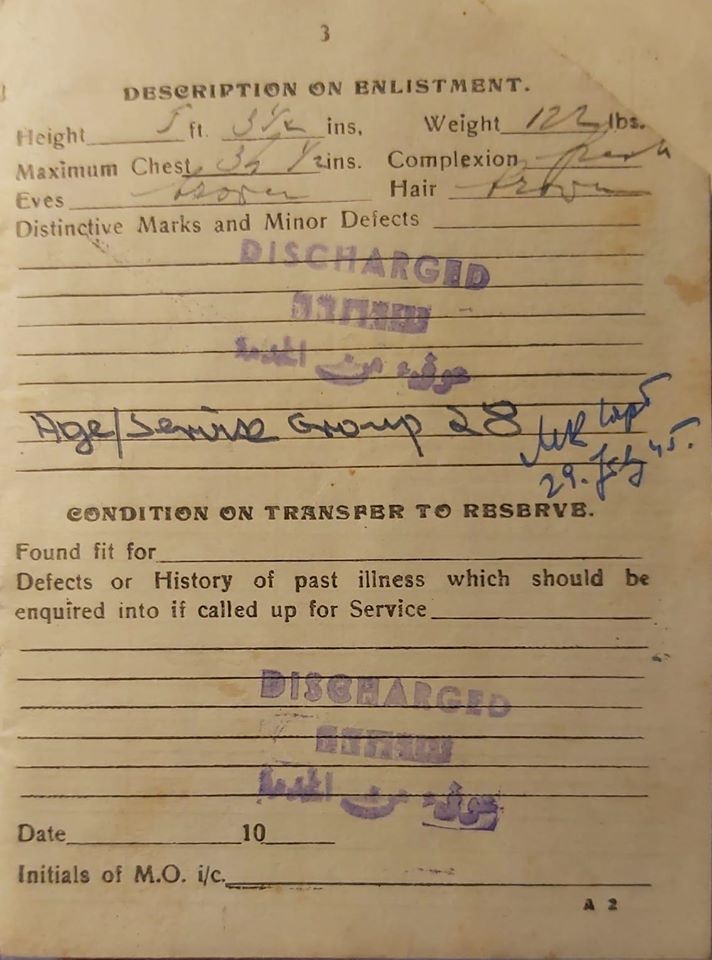 3
DESCRIPTION ON ENLISTMENT.
Height 5 ft. 3 1/2 ins, Weight 122 lbs.
Maximum Chest 1/2 ins. Complexion
Eyes Brown Hair Brown
Distinctive Marks and Minor Defects
DISCHARGED
من الخدمة
Age/Service Group 28
29. July 45.
CONDITION ON TRANSFER TO RESERVE.
Found fit for
Defects or History of past illness which should be
enquired into if called up for Service
DISCHARGED
من الخدمة
Date 10
Initials of M.O. i/c.
A 2